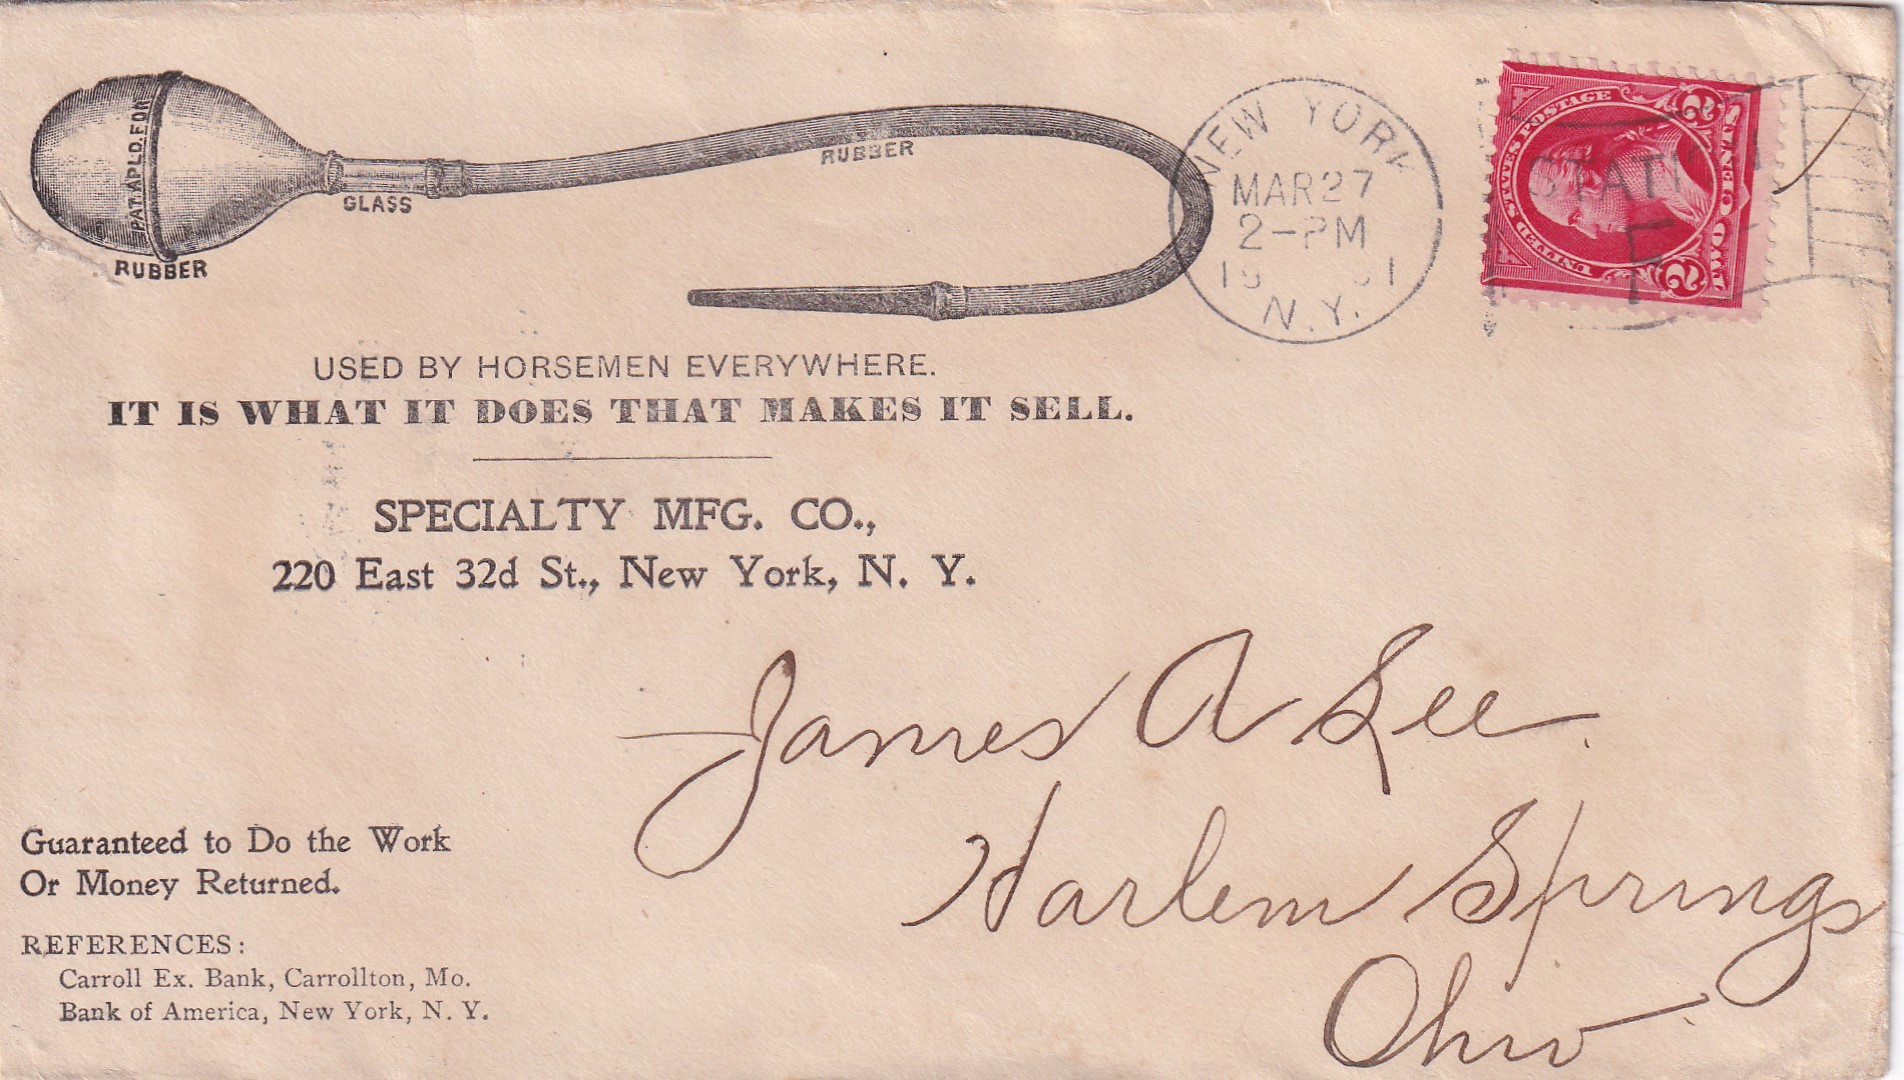 PAT. APLD. FOR
RUBBER
GLASS
RUBBER
NEW YORK
MAR 27
2-PM
19 01
N.Y.
STATION
F
UNITED STATES POSTAGE
2 TWO CENTS 2
USED BY HORSEMEN EVERYWHERE.
IT IS WHAT IT DOES THAT MAKES IT SELL.
SPECIALTY MFG. CO.,
220 East 32d St., New York, N. Y.
James A Lee
Harlem Springs
Ohio
Guaranteed to Do the Work
Or Money Returned.
REFERENCES:
Carroll Ex. Bank, Carrollton, Mo.
Bank of America, New York, N. Y.